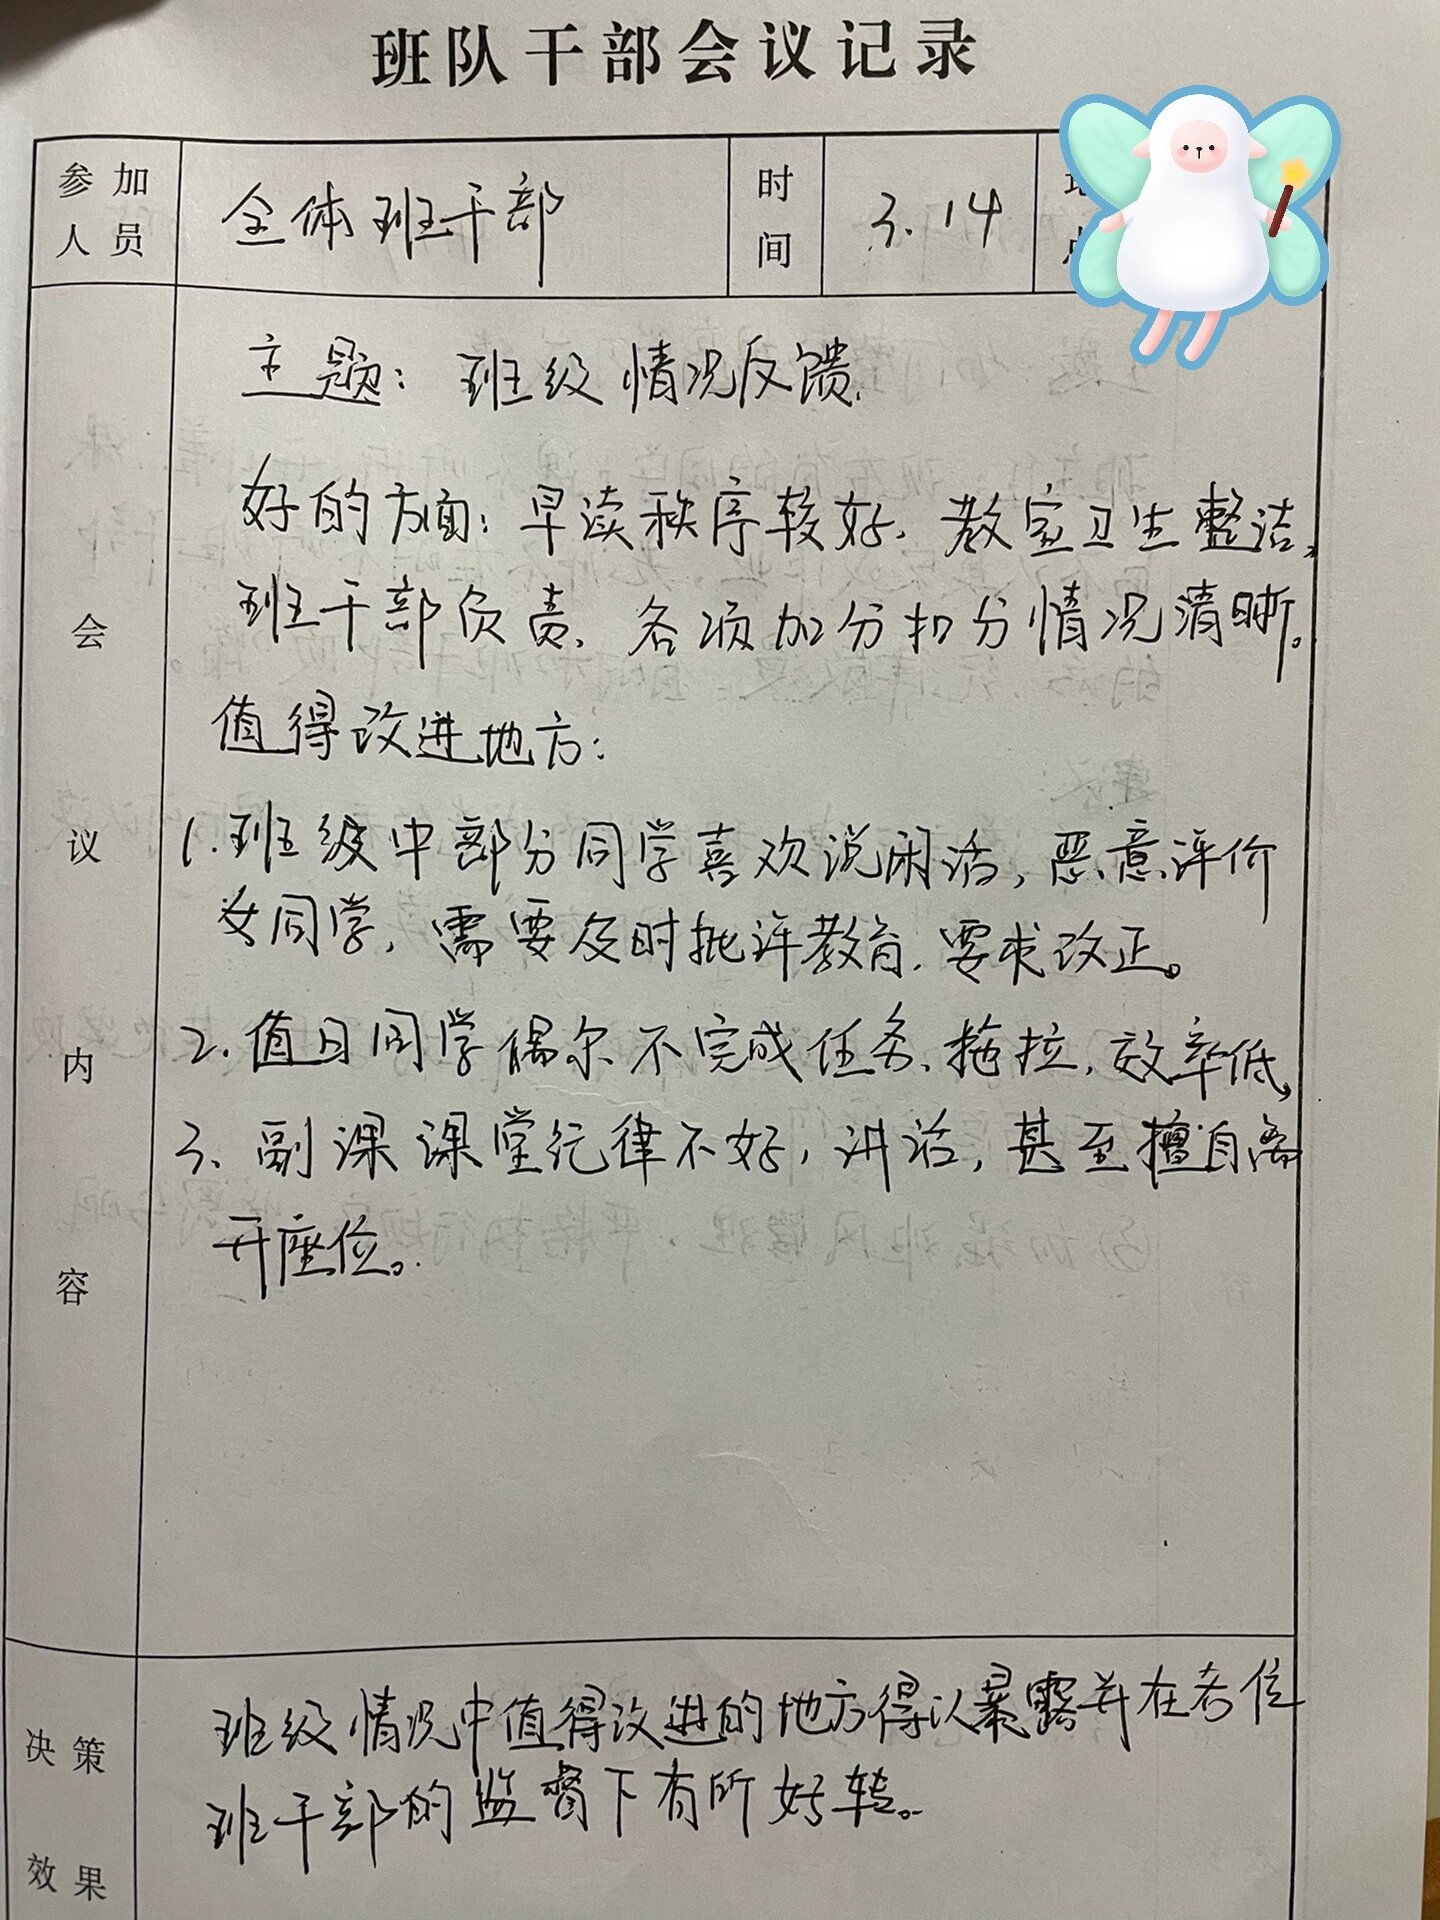 班队干部会议记录
参加人员 全体班干部 时间 3.14
主题：班级情况反馈.
好的方面：早读秩序较好，教室卫生整洁，
班干部负责，各项加分扣分情况清晰。
值得改进地方：
1.班级中部分同学喜欢说闲话，恶意评价
女同学，需要及时批评教育，要求改正。
2.值日同学偶尔不完成任务、拖拉，效率低，
3、副课课堂纪律不好，讲话，甚至擅自离
开座位。
会议内容
班级情况中值得改进的地方得以暴露并在各位
班干部的监督下有所好转。
决策效果